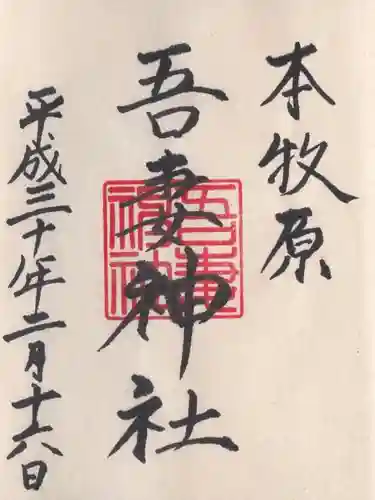 本牧原
吾妻神社
吾妻神社
平成三十年二月十六日